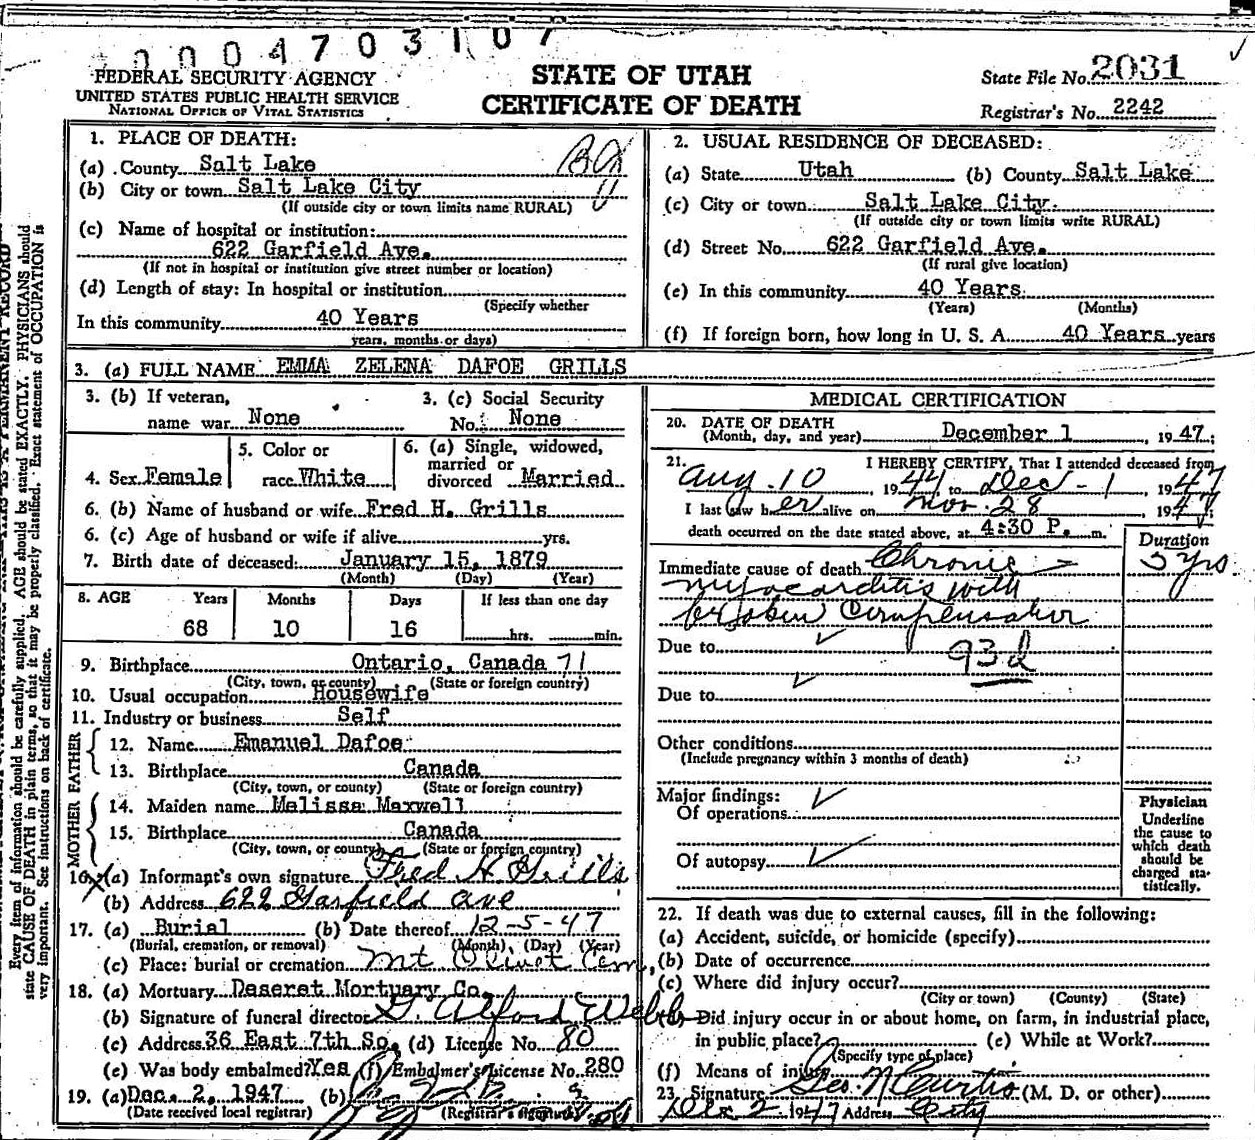 0004703107
FEDERAL SECURITY AGENCY
UNITED STATES PUBLIC HEALTH SERVICE
NATIONAL OFFICE OF VITAL STATISTICS
STATE OF UTAH
CERTIFICATE OF DEATH
State File No. 2031
Registrar's No. 2242
1. PLACE OF DEATH:
(a) County Salt Lake
(b) City or town Salt Lake City
(If outside city or town limits name RURAL)
(c) Name of hospital or institution:
622 Garfield Ave.
(If not in hospital or institution give street number or location)
(d) Length of stay: In hospital or institution
(Specify whether
In this community 40 Years
years, months or days)
2. USUAL RESIDENCE OF DECEASED:
(a) State Utah (b) County Salt Lake
(c) City or town Salt Lake City.
(If outside city or town limits write RURAL)
(d) Street No. 622 Garfield Ave.
(If rural give location)
(e) In this community 40 Years
(Years) (Months)
(f) If foreign born, how long in U. S. A. 40 Years years
3. (a) FULL NAME EMMA ZELENA DAFOE GRILLS
3. (b) If veteran,
name war None
3. (c) Social Security
No. None
4. Sex Female
5. Color or
race White
6. (a) Single, widowed,
married or
divorced Married
6. (b) Name of husband or wife Fred H. Grills
6. (c) Age of husband or wife if alive yrs.
7. Birth date of deceased: January 15, 1879
(Month) (Day) (Year)
8. AGE Years Months Days If less than one day
68 10 16 hrs. min.
9. Birthplace Ontario, Canada 71
(City, town, or county) (State or foreign country)
10. Usual occupation Housewife
11. Industry or business Self
FATHER
12. Name Emanuel Dafoe
13. Birthplace Canada
(City, town, or county) (State or foreign country)
MOTHER
14. Maiden name Melissa Maxwell
15. Birthplace Canada
(City, town, or county) (State or foreign country)
16. (a) Informant's own signature Fred H Grills
(b) Address 622 Garfield ave
17. (a) Burial (b) Date thereof 12-5-47
(Burial, cremation, or removal) (Month) (Day) (Year)
(c) Place: burial or cremation Mt Olivet Cem,
18. (a) Mortuary Deseret Mortuary Co.
(b) Signature of funeral director D. Alford Webb
(c) Address 36 East 7th So. (d) License No. 80
(e) Was body embalmed? Yes (f) Embalmer's License No. 280
19. (a) Dec. 2, 1947 (b)
(Date received local registrar) (Registrar's signature)
MEDICAL CERTIFICATION
20. DATE OF DEATH
(Month, day, and year) December 1, 1947:
21. I HEREBY CERTIFY, That I attended deceased from
Aug. 10, 1944, to Dec - 1 1947
I last saw her alive on Nov. 28 1947,
death occurred on the date stated above, at 4:30 P. m.
Duration
Immediate cause of death Chronic 3 yrs
myocarditis with
broken Compensation
Due to
93d
Due to
Other conditions
(Include pregnancy within 3 months of death)
Major findings:
Of operations
Of autopsy
Physician
Underline
the cause to
which death
should be
charged sta-
tistically.
22. If death was due to external causes, fill in the following:
(a) Accident, suicide, or homicide (specify)
(b) Date of occurrence
(c) Where did injury occur?
(City or town) (County) (State)
(d) Did injury occur in or about home, on farm, in industrial place,
in public place? (e) While at Work?
(Specify type of place)
(f) Means of injury
23. Signature Geo. N Curtis (M. D. or other)
Dec 2 1947 Address City
Every item of information should be carefully supplied. AGE should be stated EXACTLY. PHYSICIANS should
state CAUSE OF DEATH in plain terms, so that it may be properly classified. Exact statement of OCCUPATION is
very important. See instructions on back of certificate.